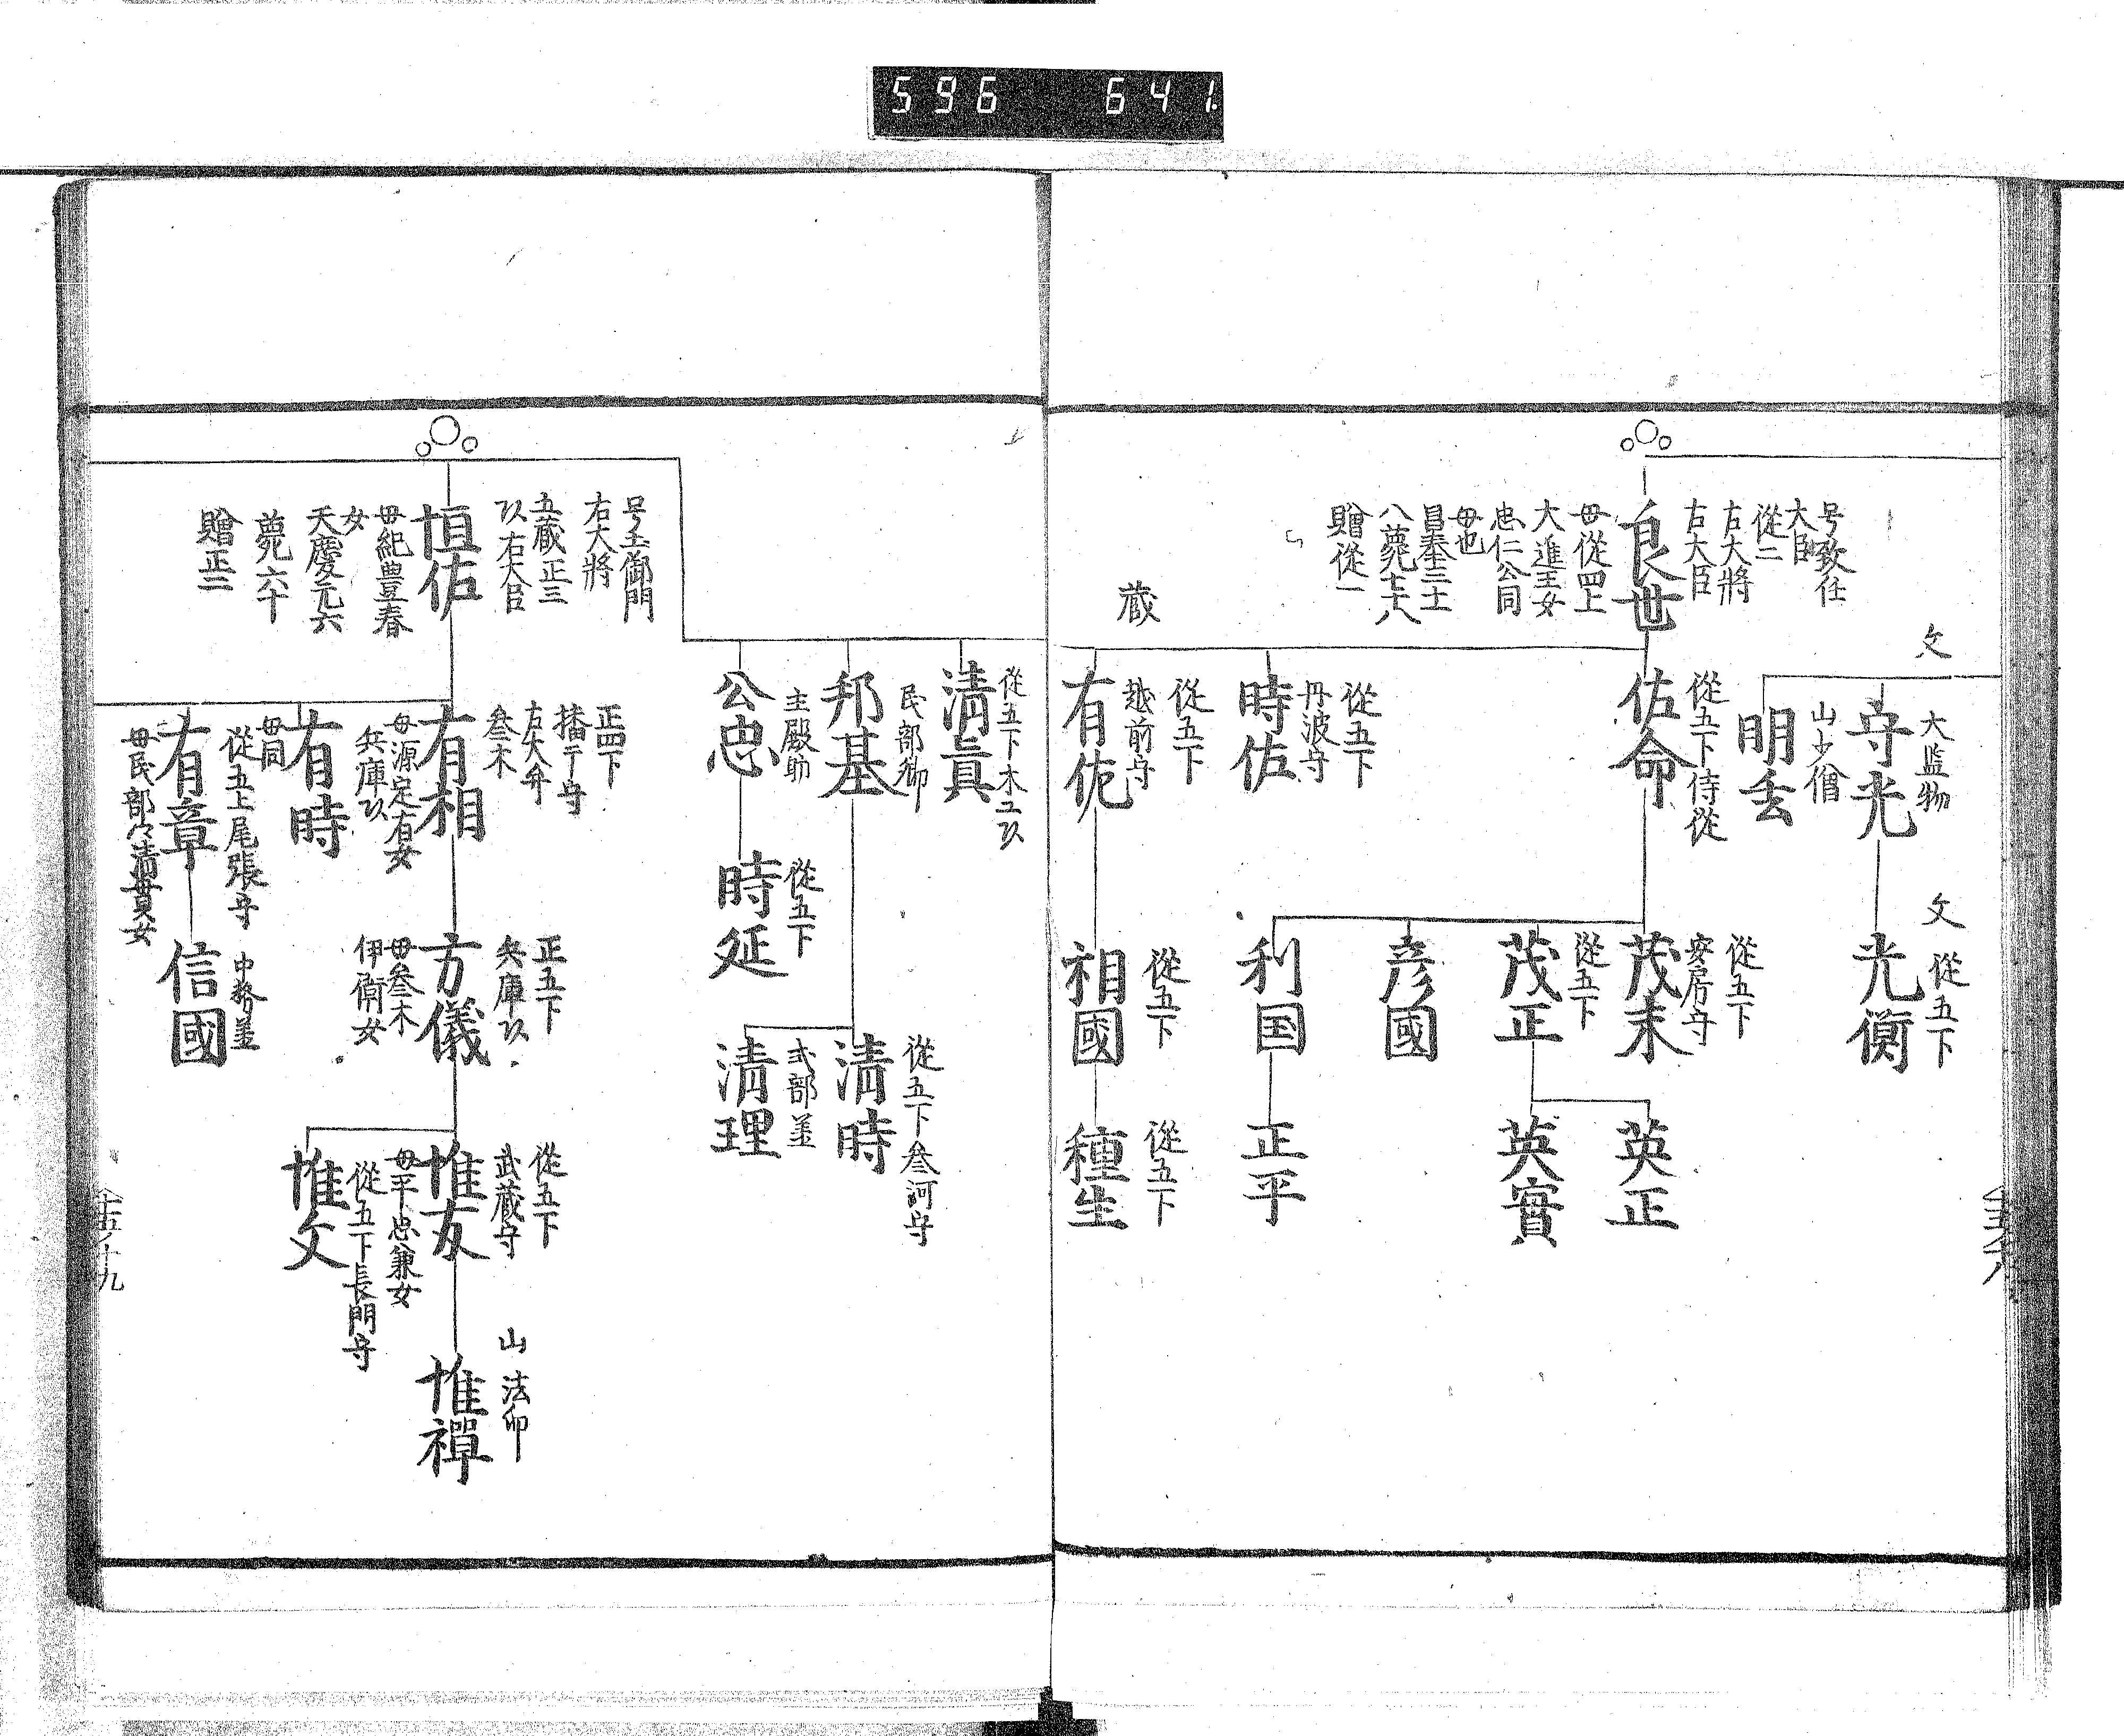 596 641.
文
大監物
守光
文
從五下
光衡
山少僧
明
号致仕
大臣
從二
右大將
右大臣
良世
母從四上
大進王女
忠仁公同
母也
昌泰三十一
八薨七十八
贈從一
從五下侍從
佐命
從五下
安房守
茂末
英正
從五下
茂正
英實
彦國
利国
正平
從五下
丹波守
時佐
蔵
從五下
越前守
有佐
從五下
相國
從五下
種生
從五下木工以
清眞
民部卿
邦基
從五下叄河守
清時
式部丞
清理
主殿助
公忠
從五下
時延
号土御門
右大將
五蔵正三
以右大臣
恒佐
母紀豊春
女
天慶元六
薨六十
贈正二
正四下
播广守
右大弁
叄木
有相
母源定有女
兵庫以
正五下
兵庫以
方儀
母叄木
伊衡女
從五下
武蔵守
惟友
母平忠兼女
山 法印
惟禪
從五下長門守
惟文
有時
母同
從五上尾張守
有章
母民部少清貫女
中務丞
信國